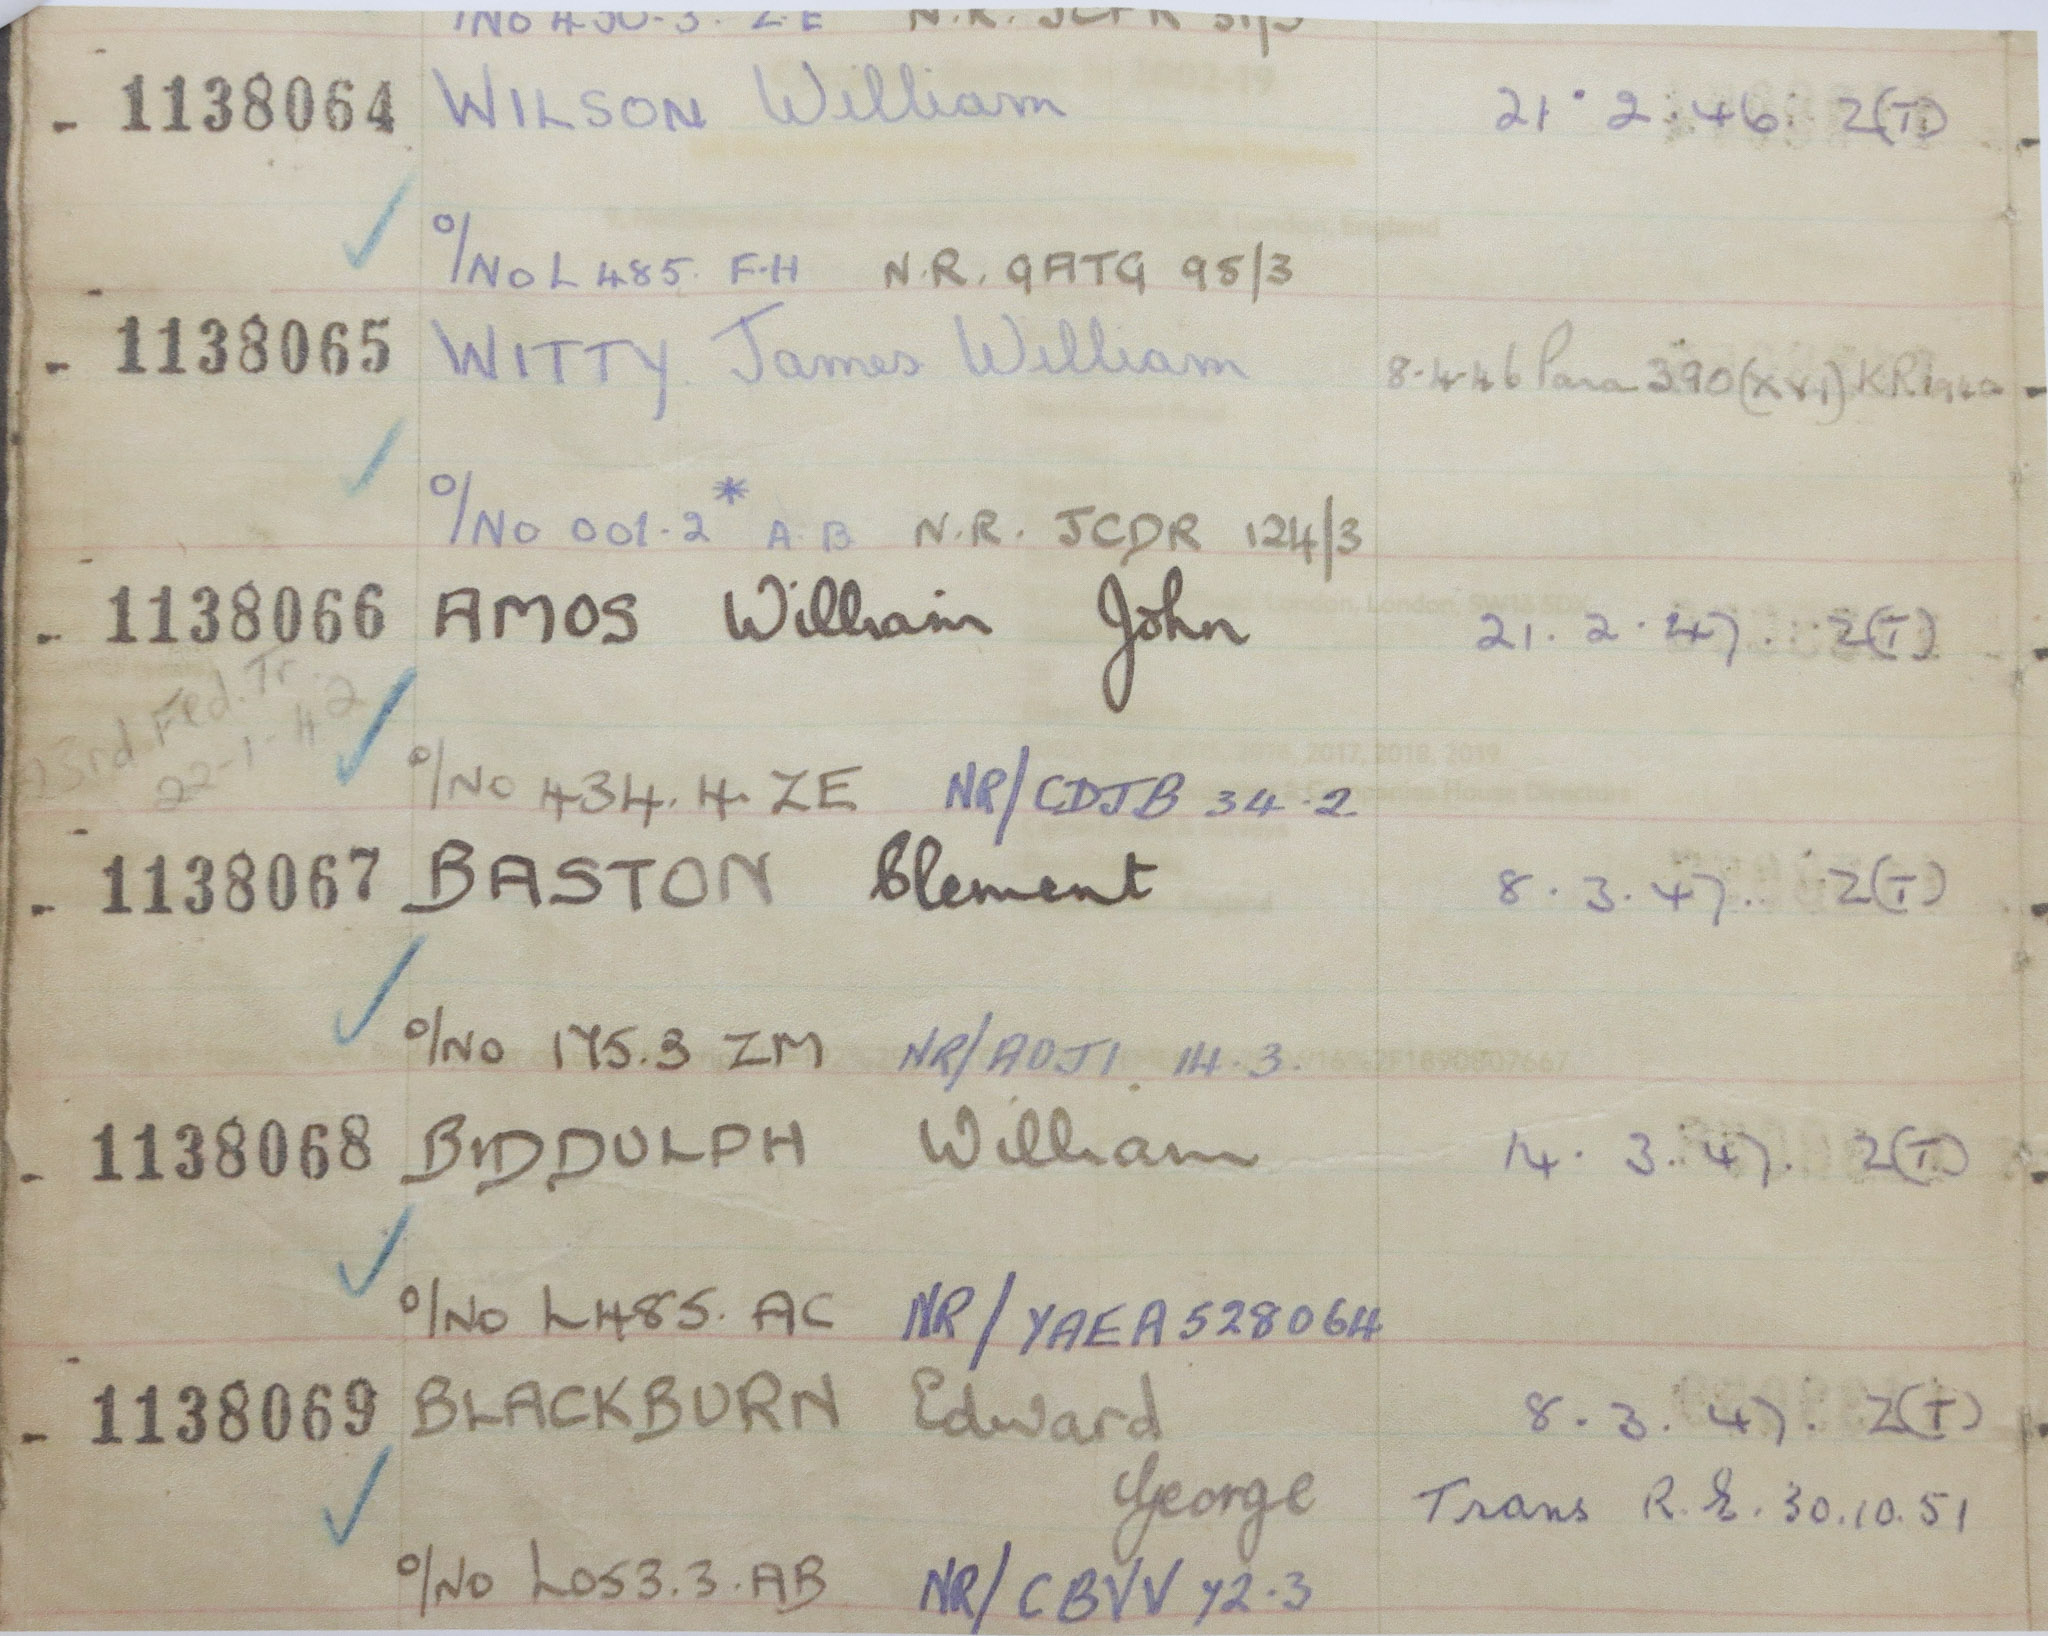 1138064 WILSON William 21.2.46. Z(T)
O/No L485. F.H N.R. QATG 95/3
1138065 WITTY James William 8.4.46 Para 390(xvi) KR 1940
O/No 001.2* A.B N.R. JCDR 124/3
1138066 AMOS William John 21.2.47. Z(T)
3rd Fed. Tr.
22-1-42
O/No 434.4. ZE NR/CDJB 34.2
1138067 BASTON Clement 8.3.47. Z(T)
O/No 175.3 ZM NR/ADJ1 14.3.
1138068 BIDDULPH William 14.3.47. Z(T)
O/No L485. AC NR/YAEA 528064
1138069 BLACKBURN Edward 8.3.47. Z(T)
George Trans R.E. 30.10.51
O/No L053.3.AB NR/CBVV Y2.3